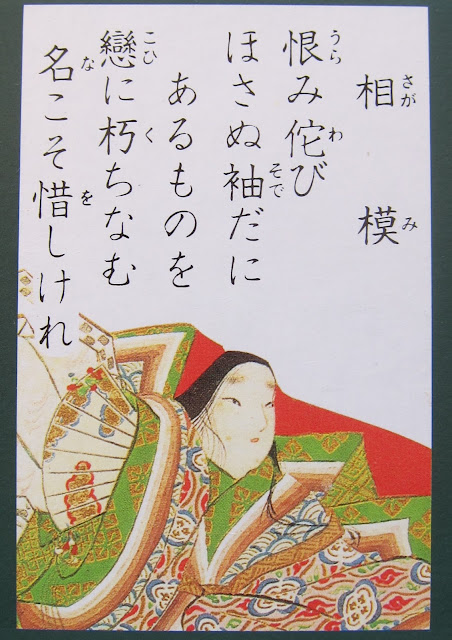 相模
さがみ
恨み侘び
うらわ
ほさぬ袖だに
そで
あるものを
戀に朽ちなむ
こひく
名こそ惜しけれ
なを